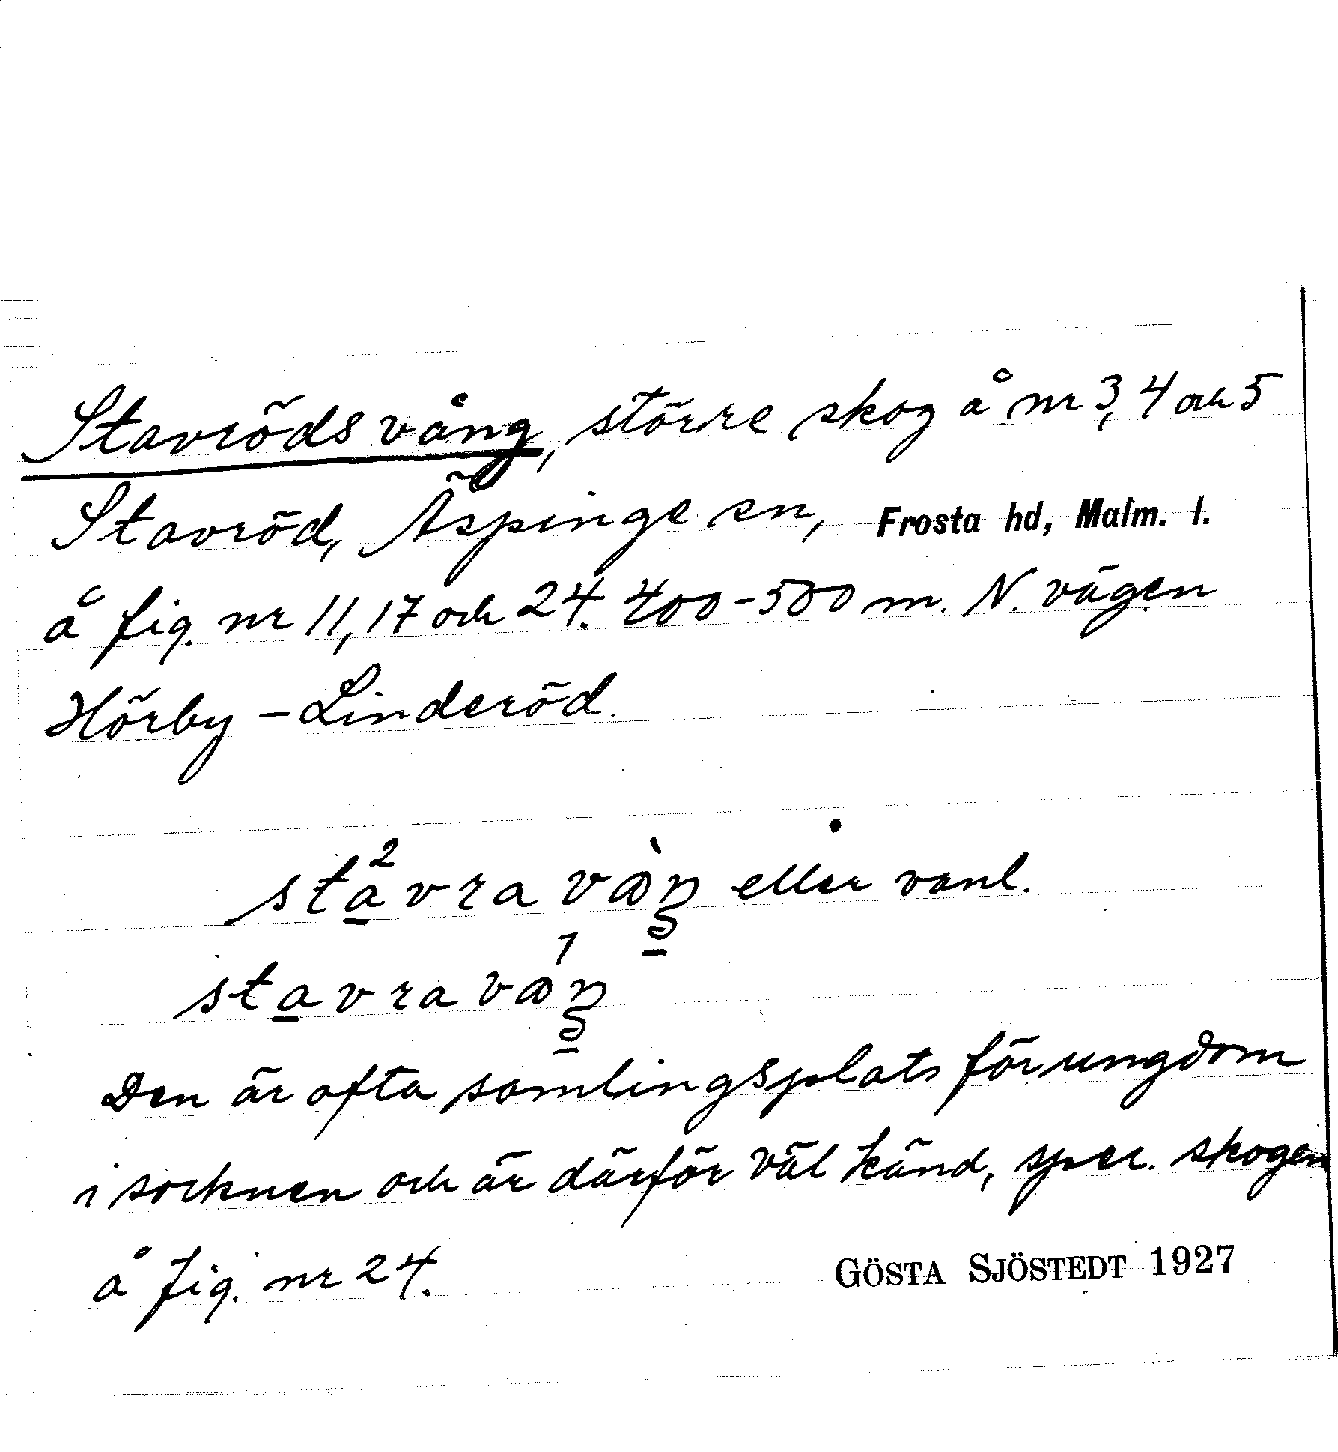 Stavröds vång, större skog å nr 3, 4 och 5
Stavröd, Äspinge sn, Frosta hd, Malm. l.
å fig. nr 11, 17 och 24. 400-500 m. N. vägen
Hörby - Linderöd.
eller vanl.
Den är ofta samlingsplats för ungdom
i socknen och är därför väl känd, spec. skogen
å fig. nr 24. GÖSTA SJÖSTEDT 1927